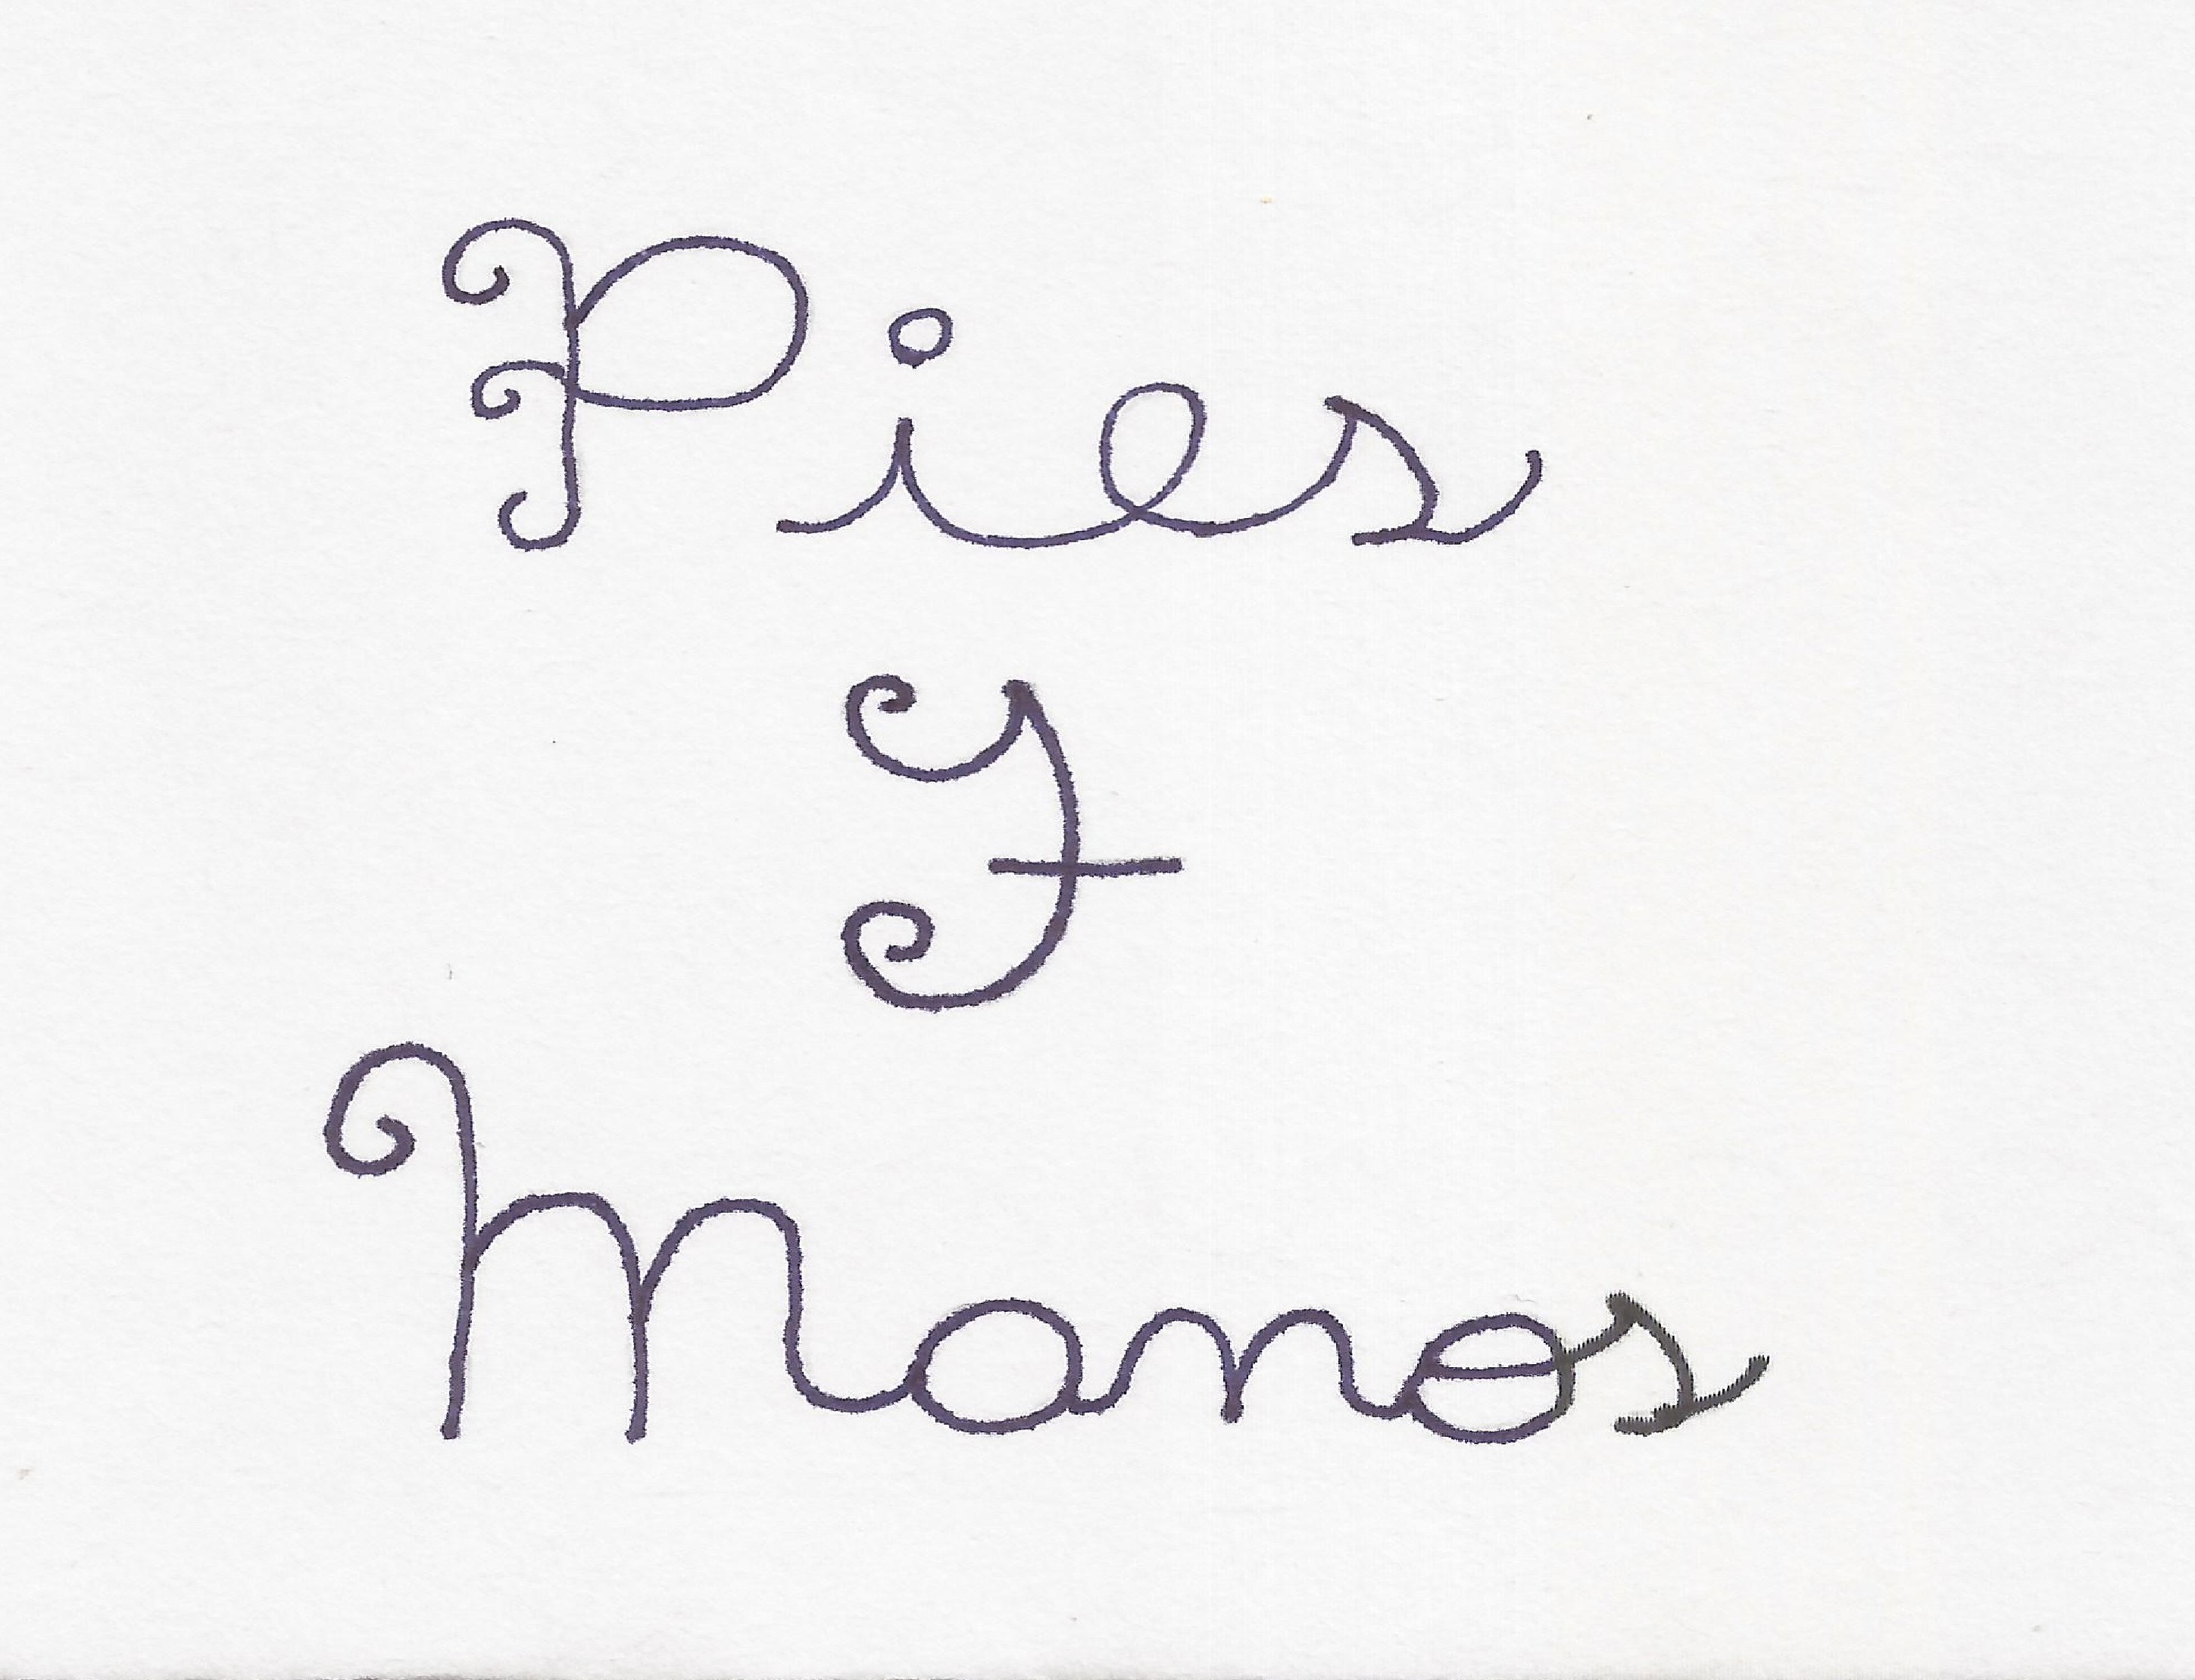 Pies
Y
Manos